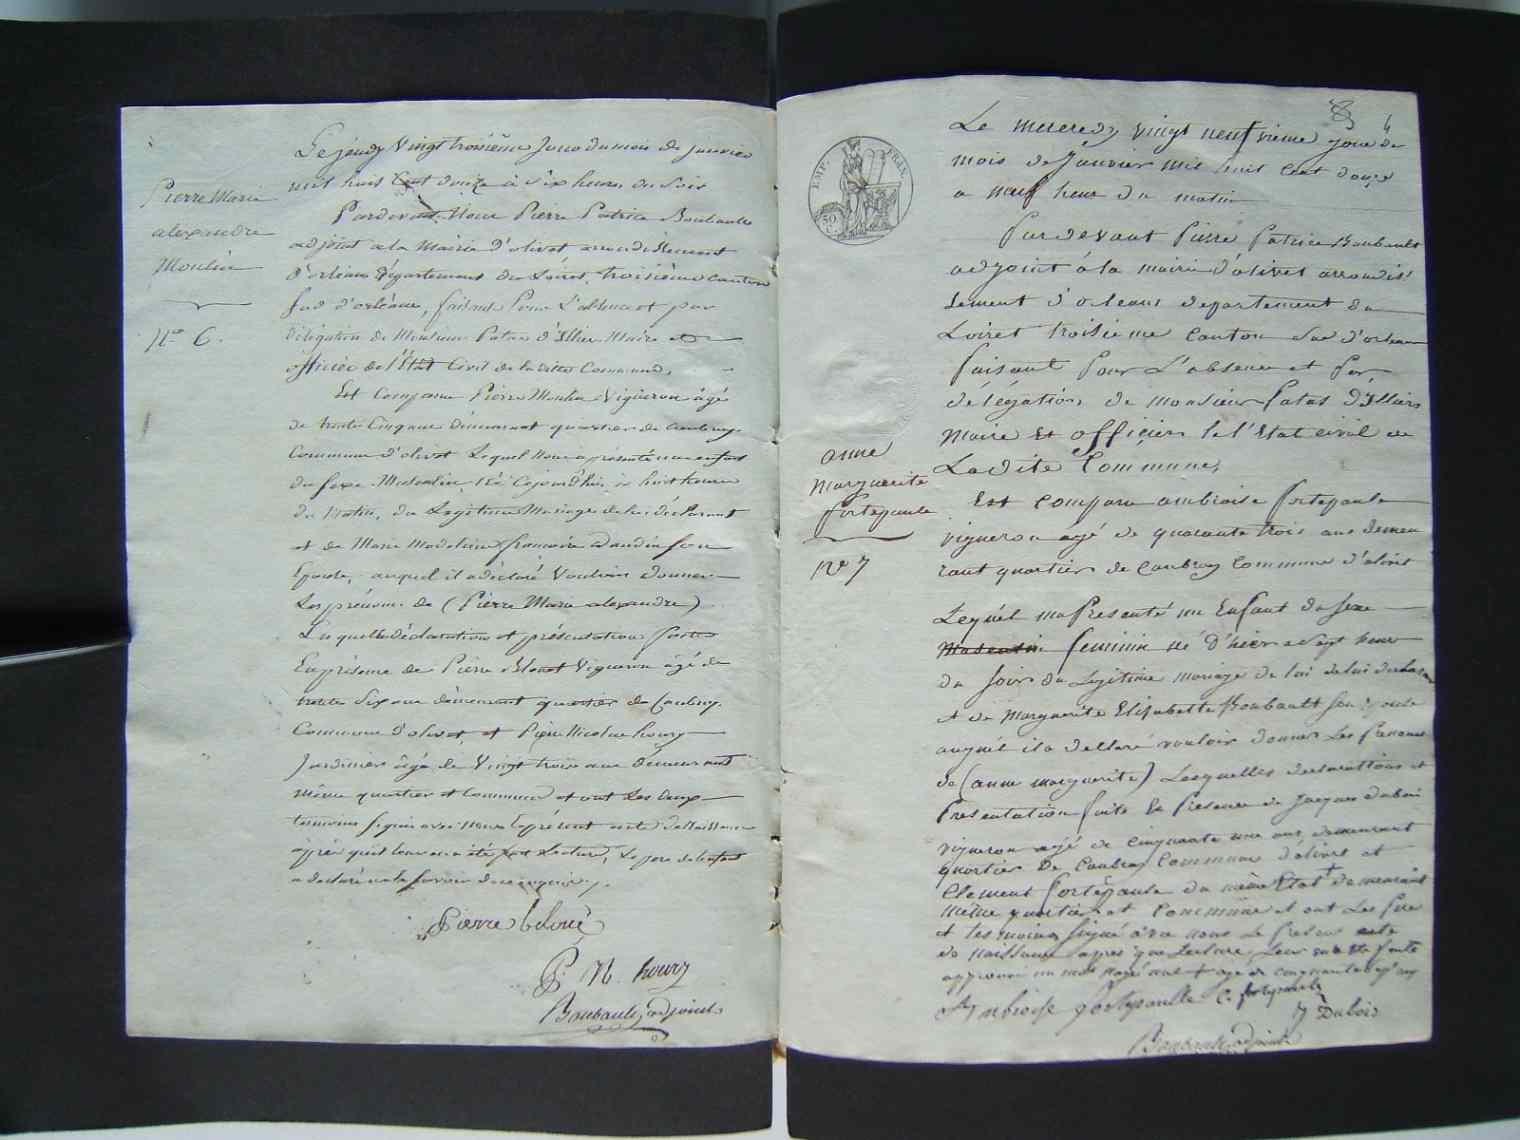 Pierre Marie
alexandre
Moulin
No 6.
Le jeudy Vingt troisième Jour du mois de janvier
mil huit Cent douze à six heures du soir
Pardevant Nous Pierre Patrice Boubault
adjoint a la Mairie D'olivet arrondissement
D'orléans département du Loiret, troisième canton
sud d'orléans, faisant Pour L'absence et par
délégation de Monsieur Patas d'Illiers Maire et
officier de l'État Civil de la ditte Commune,
Est Comparu Pierre Moulin Vigneron âgé
de trente Cinq ans demeurant quartier de Caubray
Commune d'olivet Lequel Nous a présenté un enfant
du sexe Masculin né Cejourd'hui à huit heures
du Matin, du Légitime Mariage de lui déclarant
et de Marie Madeleine françoise Daudin son
Epouse, auquel il a déclaré Vouloir donner
Les prénoms de (Pierre Marie alexandre)
Lesquelles déclaration et présentation faites
En présence de Pierre Beloué Vigneron âgé de
trente six ans demeurant quartier de Caubray
Commune d'olivet, et Pierre Nicolas houry
Jardinier âgé de Vingt trois ans demeurant
même quartier et Commune et ont Les deux
temoins signé avec Nous le présent acte de Naissance
après qu'il leur en a été fait Lecture, Le père de l'enfant
a declaré ne le savoir de ce enquis.
Pierre beloué
P. N. houry
Boubault adjoint
8
EMP. FRAN.
50 C.
anne
marguerite
fortepaule
No 7
Le mercredy vingt neuf vieme jour du
mois de Janvier mil huit Cent douze
a neuf heure du matin
Pardevant Pierre Patrice Boubault
adjoint à la mairie d'olivet arrondis
sement d'orleans departement du
Loiret troisieme Canton sud d'orleans
faisant Pour L'absence et par
délégation de monsieur Patas D'Illiers
Maire Et officier de l'Etat civil de
Ladite Commune,
Est Comparu ambroise fortepaule
vigneron agé de quarante trois ans demeu
rant quartier de Caubray Commune d'olivet
Lequel ma Presenté un Enfant du sexe
Masculin feminin né d'hier a sept heure
du soir du Legitime mariage de lui de lui declarant
et de Marguerite Elisabette Boubault son Epouse
auquel il a declaré vouloir donner Les Prenoms
de (anne marguerite) Lesquelles declarations et
Presentation faite En Presence de Jacques dubois
vigneron agé de Cinquante une ans demeurant
quartier De Caubray Commune d'olivet et
Clement fortepaule du même Etat + demeurant
même quartier et Commune et ont Les pere
et tesmoins signé avec nous Le present acte
de naissance apres que Lecture Leur en a été faite
approuvé un mot rayé nul + agé de cinquante
Ambroise fortepaulle C. fortepaulle
J Dubois
Boubault adjoint